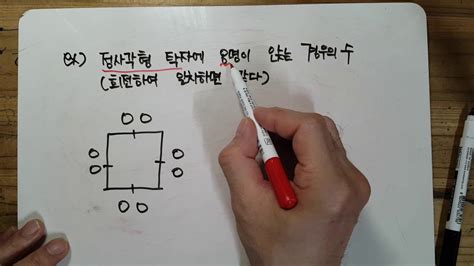 ex.) 정사각형 탁자에 8명이 앉는 경우의 수
(회전하여 일치하면 같다)